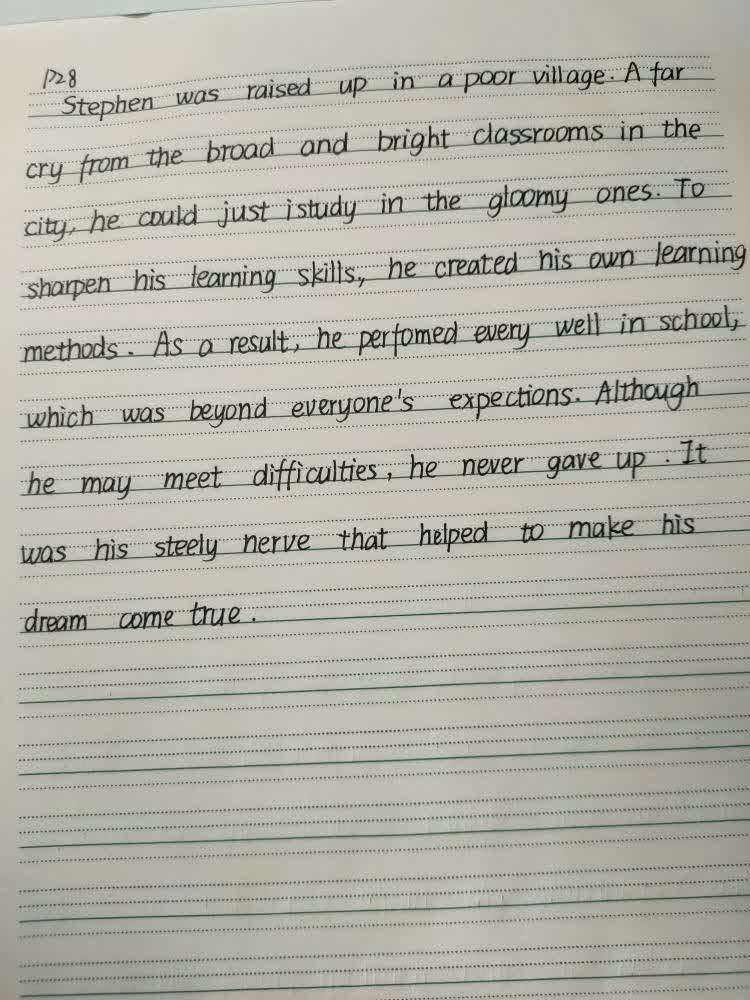 P28
Stephen was raised up in a poor village. A far
cry from the broad and bright classrooms in the
city, he could just istudy in the gloomy ones. To
sharpen his learning skills, he created his own learning
methods. As a result, he perfomed every well in school,
which was beyond everyone's expections. Although
he may meet difficulties, he never gave up. It
was his steely nerve that helped to make his
dream come true.